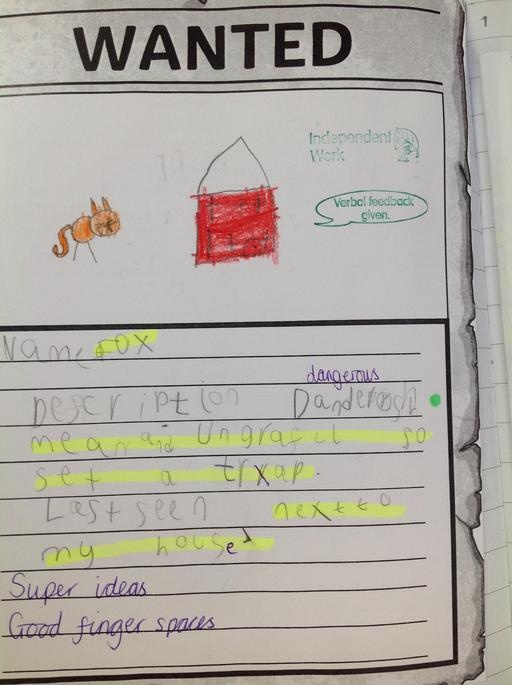 WANTED
1
Independent
Work
Verbal feedback
given.
Name fox
dangerous
Description
mean and Ungraful so
set a trxap.
Last seen next to
my house
Super ideas
Good finger spaces